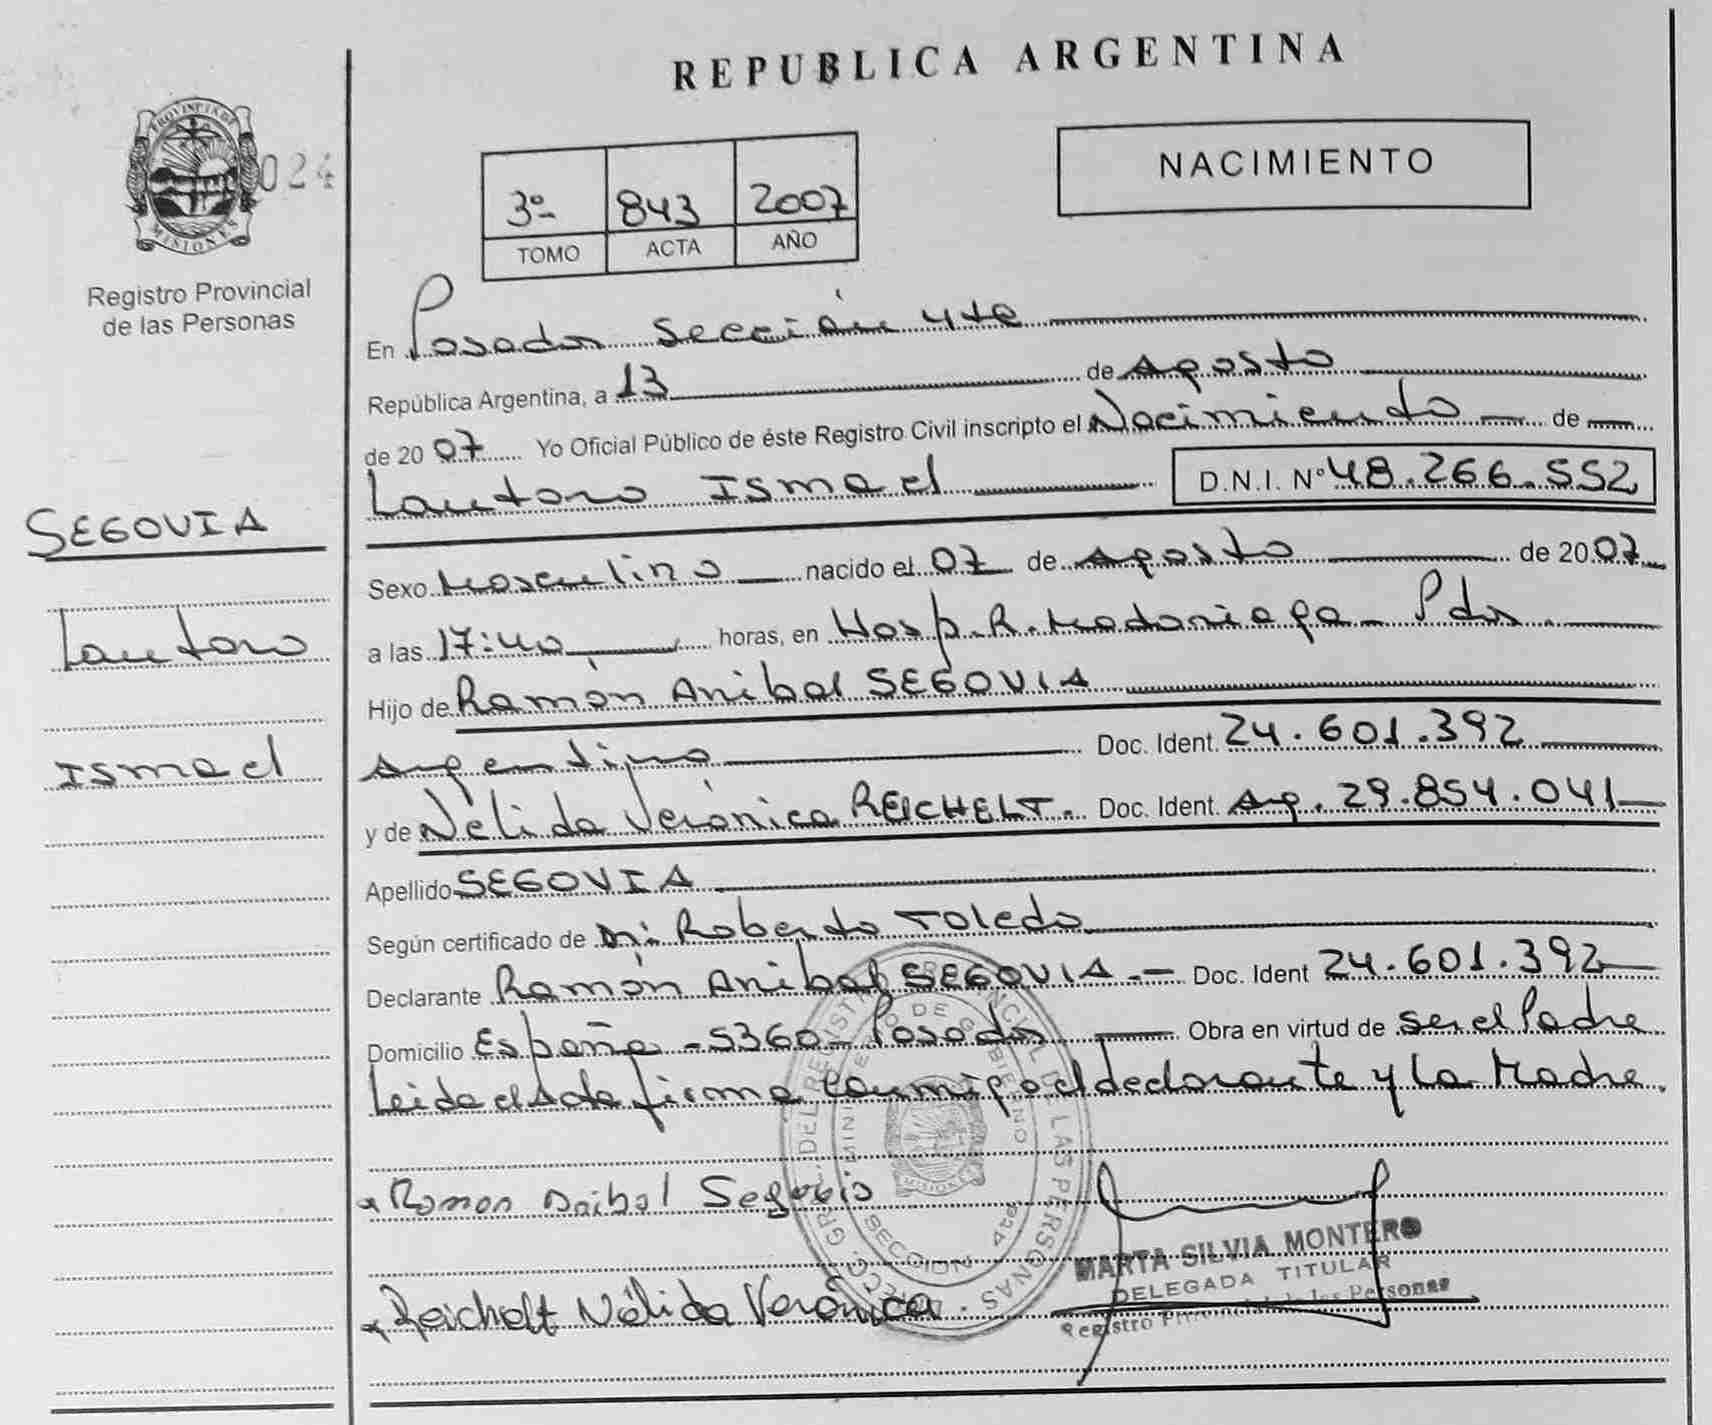 REPUBLICA ARGENTINA
PROVINCIA DE MISIONES
024
Registro Provincial
de las Personas
3º- 843 2007
TOMO ACTA AÑO
NACIMIENTO
En Posadas Sección 4ta
República Argentina, a 13 de Agosto
de 2007 Yo Oficial Público de éste Registro Civil inscripto el Nacimiento de
Lautaro Ismael D.N.I. Nº 48.266.552
SEGOVIA
Lautaro
Ismael
Sexo Masculino nacido el 07 de Agosto de 2007
a las 17:40 horas, en Hosp. R. Madariaga - Pdas.
Hijo de Ramón Anibal SEGOVIA
Argentino Doc. Ident. 24.601.392
y de Nélida Verónica REICHELT. Doc. Ident. Arg. 29.854.041
Apellido SEGOVIA
Según certificado de Roberto Toledo
Declarante Ramón Anibal SEGOVIA.- Doc. Ident 24.601.392
Domicilio España - 5360 - Posadas Obra en virtud de ser el Padre
Leida el Acta firma conmigo el declarante y la Madre.
Ramon Anibal Segovia
Reichelt Nélida Verónica.
DEL REGISTRO PROVINCIAL DE LAS PERSONAS
MINISTERIO DE GOBIERNO
MISIONES
SECCION 4ta
MARTA SILVIA MONTERO
DELEGADA TITULAR
Registro Provincial de las Personas